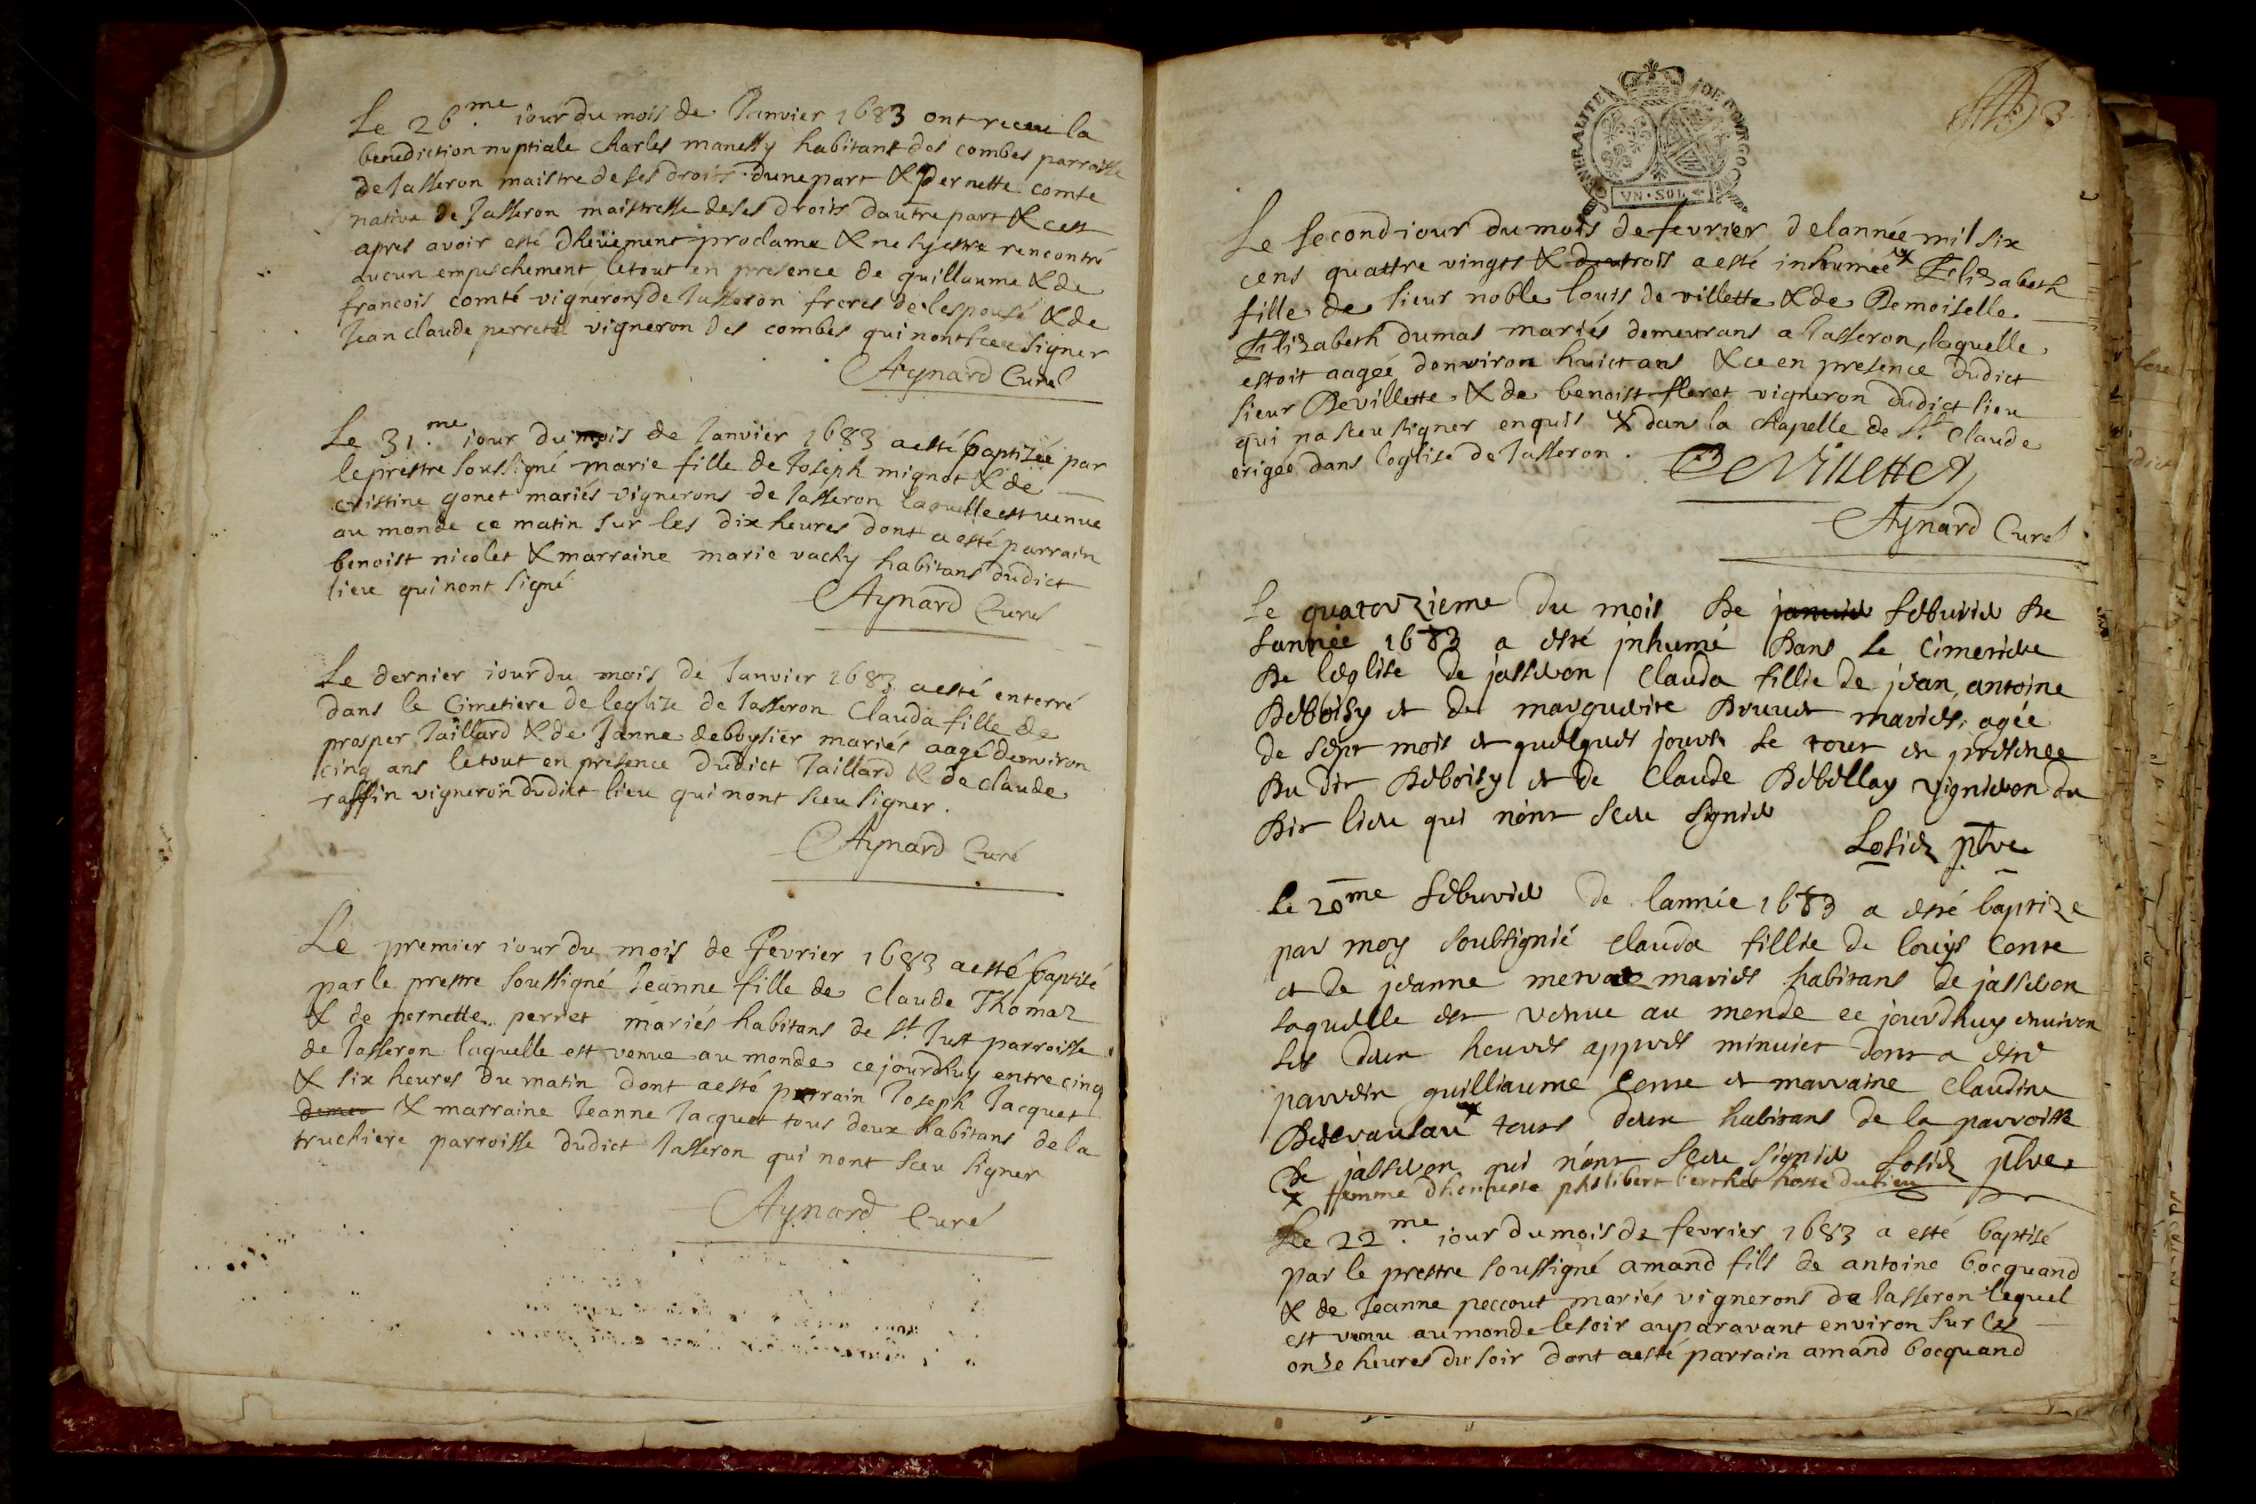 Le 26.me iour du mois de Janvier 1683 ont receu la
benediction nuptiale Charles manessy habitant des combes parroisse
de Jasseron maistre de ses droits d'une part & pernette comte
native de Jasseron maistresse de ses droits dautre part & cest
apres avoir esté dheüement proclamé & ne sy estre rencontré
aucun empeschement, le tout en presence de guillaume & de
francois comté vignerons de Jasseron freres de lespousé & de
Jean claude perretil vigneron des combes qui nont sceu signer
Aynard Curé
Le 31.me iour du mois de Janvier 1683 a esté baptisée par
le prestre soussigné marie fille de Joseph mignot & de
cristine gonet mariés vignerons de Jasseron laquelle est venue
au monde ce matin sur les dix heures dont a esté parrain
benoist nicolet & marraine marie vachy habitans dudict
lieu qui nont signé
Aynard Curé
Le dernier iour du mois de Janvier 1683 a esté enterré
dans le Cimetiere de leglise de Jasseron Clauda fille de
prosper Jaillard & de Janne debbysier mariés aagé denviron
cinq ans le tout en presence dudict Jaillard & de claude
raffin vigneron dudict lieu qui nont sceu signer.
Aynard Curé
Le premier iour du mois de Fevrier 1683 a esté baptisé
par le prestre soussigné Jeanne fille de Claude Thomaz
& de pernette perret mariés habitans de st. Just parroisse
de Jasseron laquelle est venue au monde cejourdhuy entre cinq
& six heures du matin dont a esté parrain Joseph Jacquet
& marraine Jeanne Jacquet tous deux habitans de la
truchiere parroisse dudict Jasseron qui nont sceu signer
Aynard Curé
GENERALITE DE BOURGOGNE
VN · SOL
3
Le second iour du mois de fevrier de lannée mil six
cens quattre vingts & trois a esté inhumée x Elizabeth
fille de sieur noble louis de villette & de Demoiselle
Elizabeth dumas mariés demeurans a Jasseron, laquelle
estoit aagée denviron huict ans & ce en presence dudict
sieur Devillette & de benoist fleret vigneron dudict lieu
qui na sceu signer enquis x dans la chapelle de st. Claude
erigée dans leglise de Jasseron.
De Villette
Aynard Curé
Le quatorzieme du mois de janvier feburier de
lannée 1683 a esté inhumé dans le Cimetiere
de leglise de jasseron Clauda fillie de jean, antoine
Deboisy et de marguerite Brunet mariés, agée
de sept mois et quelques jours le tout en presence
du dit Deboisy et de Claude Debellay vigneron du
dit lieu qui nont sceu signer
Losier ptre
Le 20me feburier de lannée 1683 a esté baptize
par moy soubsignié clauda fillie de louys Conte
et de jeanne mariés habitans de jasseron
laquelle est venue au monde ce jourdhuy environ
les deux heures appres minuict dont a esté
parrein guilliaume Conte et marraine Claudine
x tours deux habitans de la parroisse
de jasseron qui nont sceu signer Losier ptre
x femme dhonneste philibert berchet hoste du lieu
Le 22.me iour du mois de fevrier 1683 a esté baptisé
par le prestre soussigné amand fils de antoine bocquand
& de Jeanne peccout mariés vignerons de Jasseron lequel
est venu au monde le soir auparavant environ sur les
onze heures du soir dont a esté parrain amand bocquand